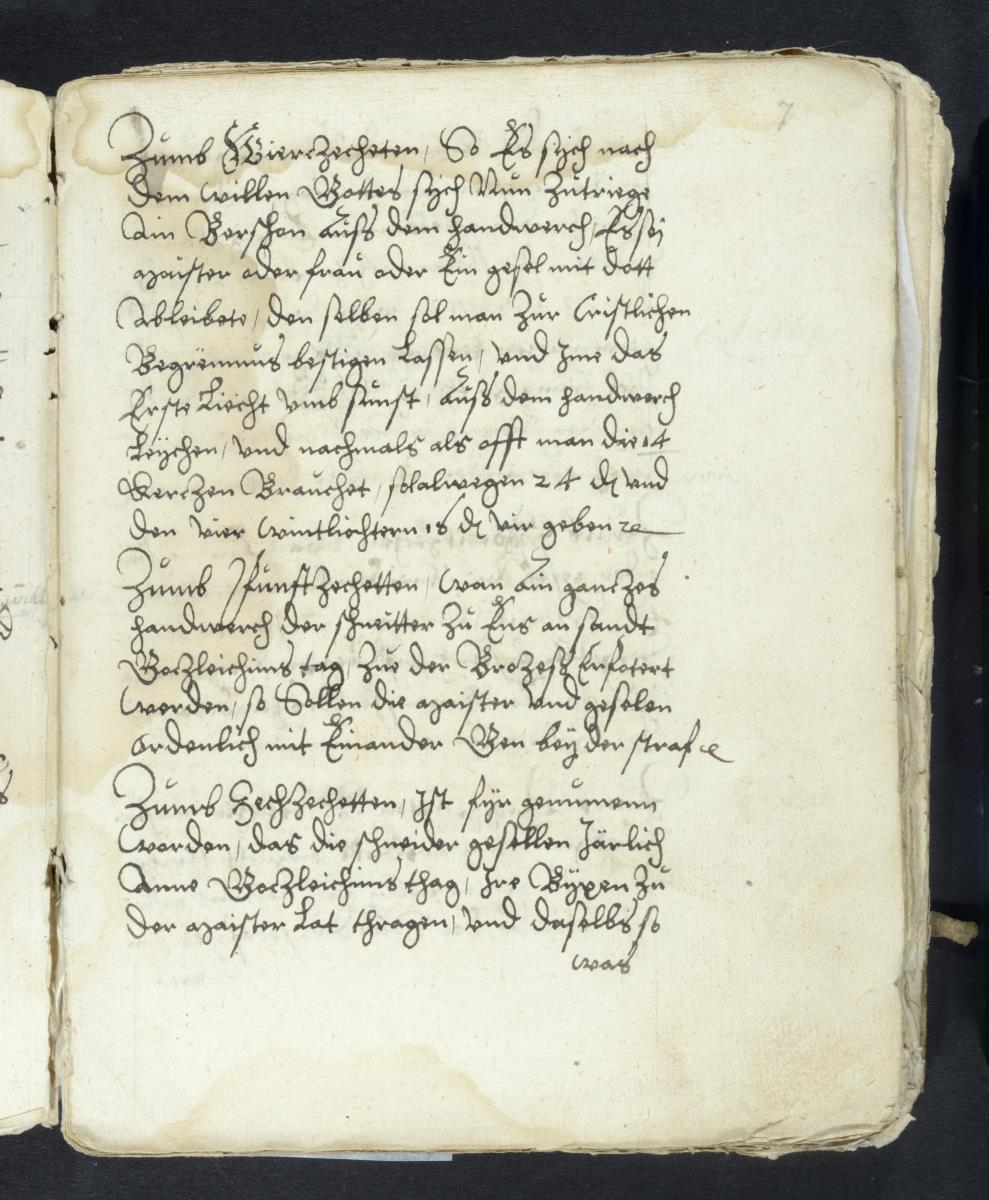 7
Zumb Vierczecheten, So Es sych nach
dem willen Gottes sych Nun Zutriege
Ain Berschon Auß dem handwerch, Es sey
maister oder frau oder Ein gesel mit dott
Ableibete, den selben sol man Zur Cristlichen
Begrebnnus bestigen Lassen, und Ime das
Erste Liecht umb sunst, Auß dem handwerch
Leychen, und nachmals als offt man die 14
Kerczen Brauchet, sol alwegen 24 d und
den vier wintliechtern 16 d vir geben
Zumb Funftzechetten, wan Ain ganczes
handwerch der schneitter Zu Ens an sandt
Goczleichims tag Zue der Brozeß Erfotert
werden, so Sollen die maister und geselen
ordenlich mit Einander Gen bey der straf
Zumb Sechzechetten, Ist fyr genumenn
worden, das die schneider gesellen Järlich
Anne Goczleichims thag, Ire Byxen Zu
der maister Lat thragen, und daselbs so
was